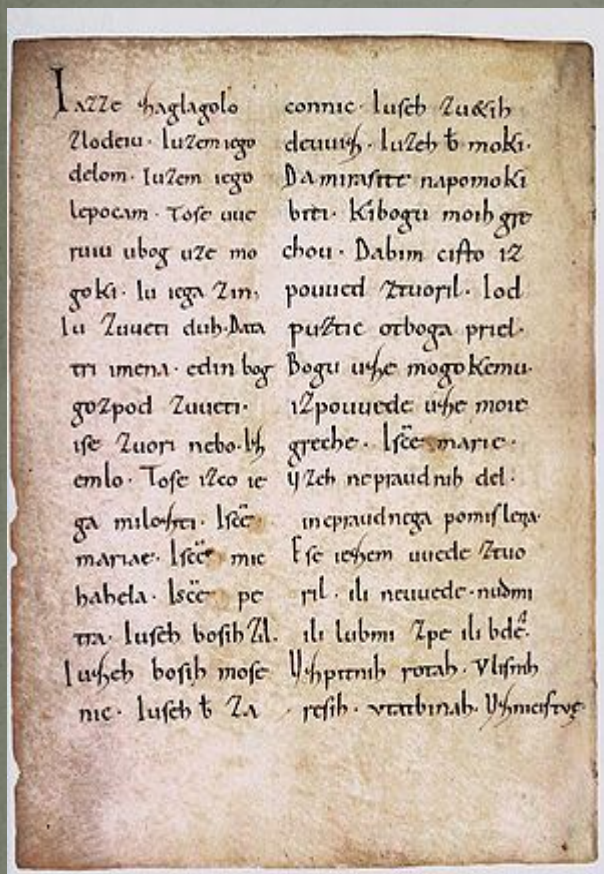 Iazze zaglagolo
zlodeiu. Iuzem iego
delom. Iuzem iego
lepocam. Tose uue
ruiu ubog uze mo
goki. Iu iega zin,
Iu zuueti duh. Data
tri imena. edin bog
gozpod zuueti.
ise zuori nebo. Iz
emlo. Tose izco ie
ga milozti. Iscē
mariae. Iscē mic
hahela. Iscē pe
tra. Iuseh bosih zil.
Iuzeh bosih mose
nic. Iuseh ƀ za
connic. Iuseh zu&ih
deuuiz. Iuzeh ƀ moki.
Da mirasite napomoki
biti. Kibogu moih gre
chou. Dabim cisto iz
pouued ztuoril. Iod
puztic otboga priel.
Bogu uze mogokemu.
izpouuede uze moie
greche. Iscē marie.
Uzeh nepraudnih del.
inepraudnega pomislena.
Ese iezem uuede ztuo
ril. ili neuuede. nudmi
ili lubmi zpe ili bdē.
Uzpitnih rotah. Vlisnih
resih. vtatbinah. Uznicistoę